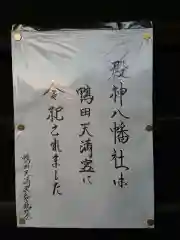 殿神八幡社は
鴨田天満宮に
合祀されました
鴨田天満宮